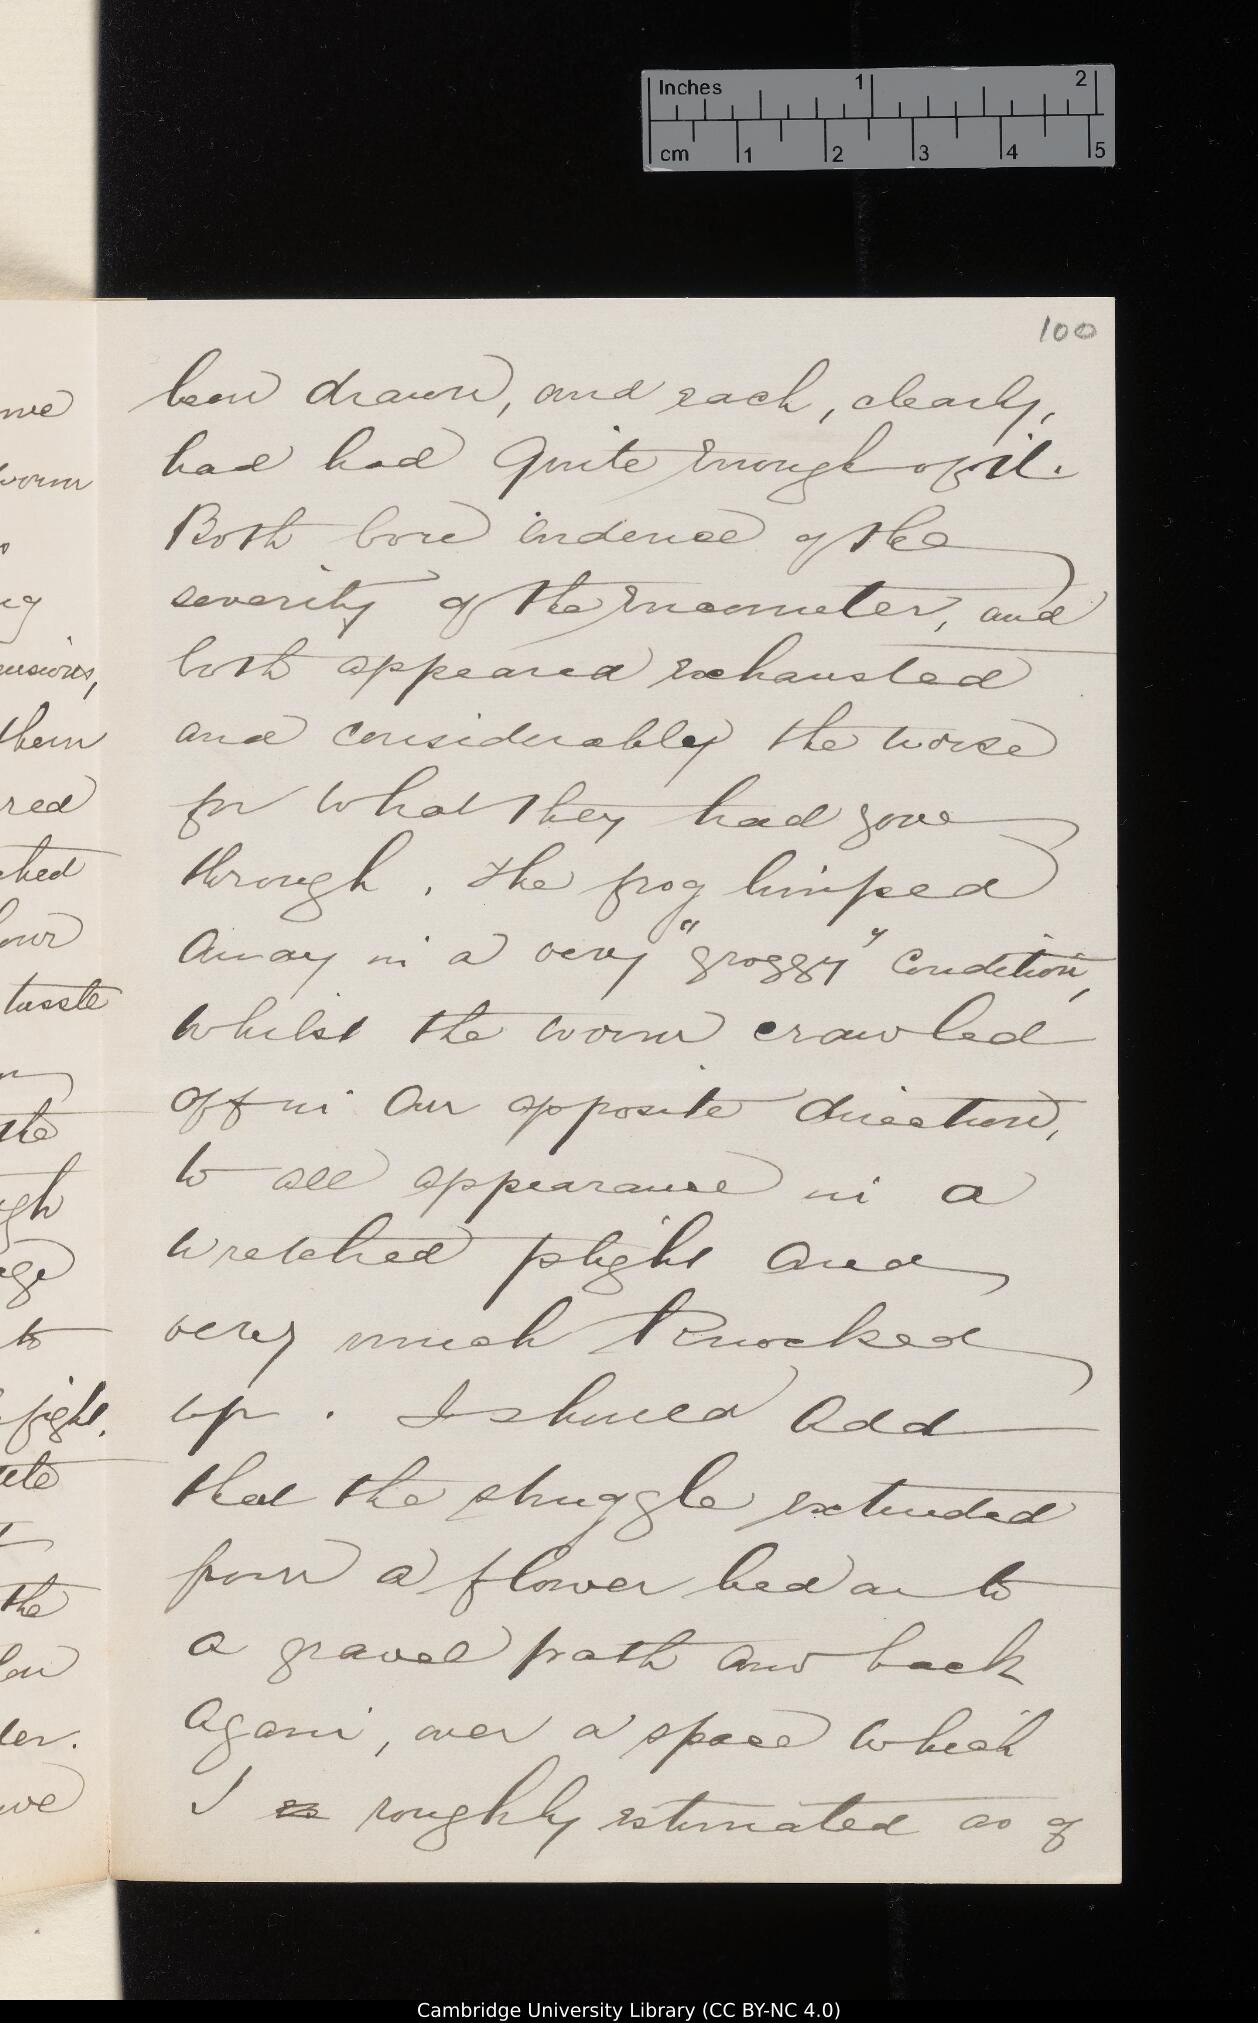 Inches 1 2
cm 1 2 3 4 5
100
been drawn, and each, clearly,
had had quite enough of it.
Both bore evidence of the
severity of the encounter, and
both appeared exhausted
and considerably the worse
for what they had gone
through. The frog limped
away in a very "groggy" condition,
whilst the worm crawled
off in an opposite direction,
to all appearance in a
wretched plight and
very much knocked
up. I should add
that the struggle extended
from a flower bed on to
a gravel path and back
again, over a space which
I roughly estimated as of
me
worm
ensions,
them
red
ched
hour
tussle
the
gh
age
to
fight.
the
ler.
Cambridge University Library (CC BY-NC 4.0)